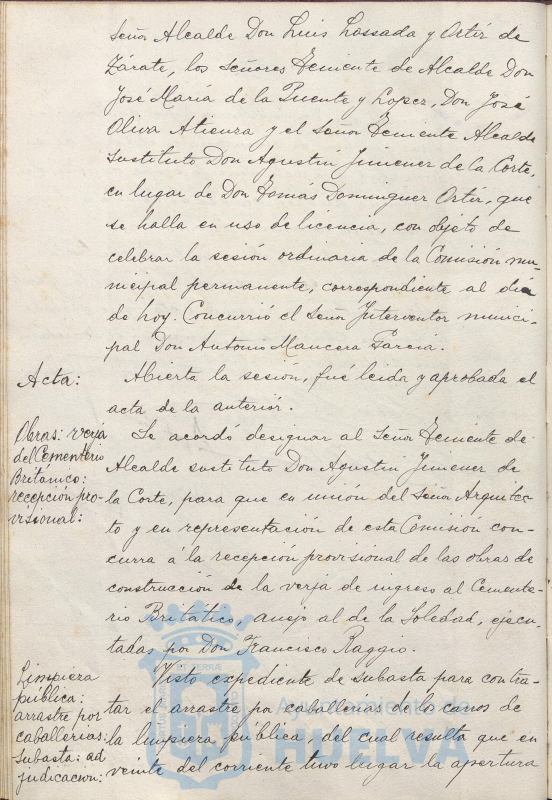 Señor Alcalde Don Luis Lossada y Ortíz de
Zárate, los Señores Teniente de Alcalde Don
José María de la Puente y Lopez, Don José
Oliva Atienza y el Señor Teniente Alcalde
sustituto Don Agustín Jimenez de la Corte,
en lugar de Don Tomás Dominguez Ortíz, que
se halla en uso de licencia, con objeto de
celebrar la sesión ordinaria de la Comisión mu-
nicipal permanente, correspondiente al día
de hoy. Concurrió el Señor Interventor munici-
pal Don Antonio Mancera Garcia.
Acta:
Abierta la sesión, fué leida y aprobada el
acta de la anterior.
Obras: verja
del Cementerio
Británico:
recepción pro-
visional:
Se acordó designar al Señor Teniente de
Alcalde sustituto Don Agustin Jimenez de
la Corte, para que en unión del Señor Arquitec-
to y en representación de esta Comisión con-
curra á la recepción provisional de las obras de
construcción de la verja de ingreso al Cemente-
rio Britático, anejo al de la Soledad, ejecu-
tadas por Don Francisco Raggio.
Limpieza
pública:
arrastre por
caballerias:
subasta: ad
judicacion:
Visto expediente de subasta para contra-
tar el arrastre por caballerias de los carros de
la limpieza pública, del cual resulta que en
veinte del corriente tuvo lugar la apertura
Ayuntamiento de
HUELVA